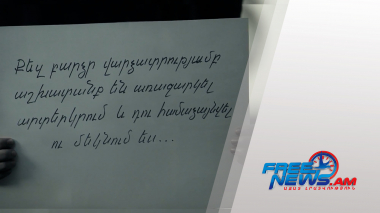 Քեզ բարձր վարձատրությամբ
աշխատանք են առաջարկել
արտերկրում և դու համաձայնվել
ու մեկնում ես...
FREE
NEWS.AM
ԱԶԱՏ ԼՐԱՏՎՈՒԹՅՈՒՆ